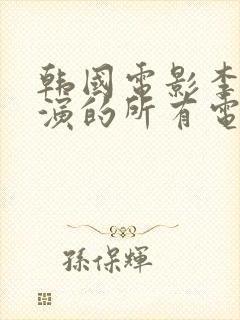 韩國電影李
演的所有電
孫保輝